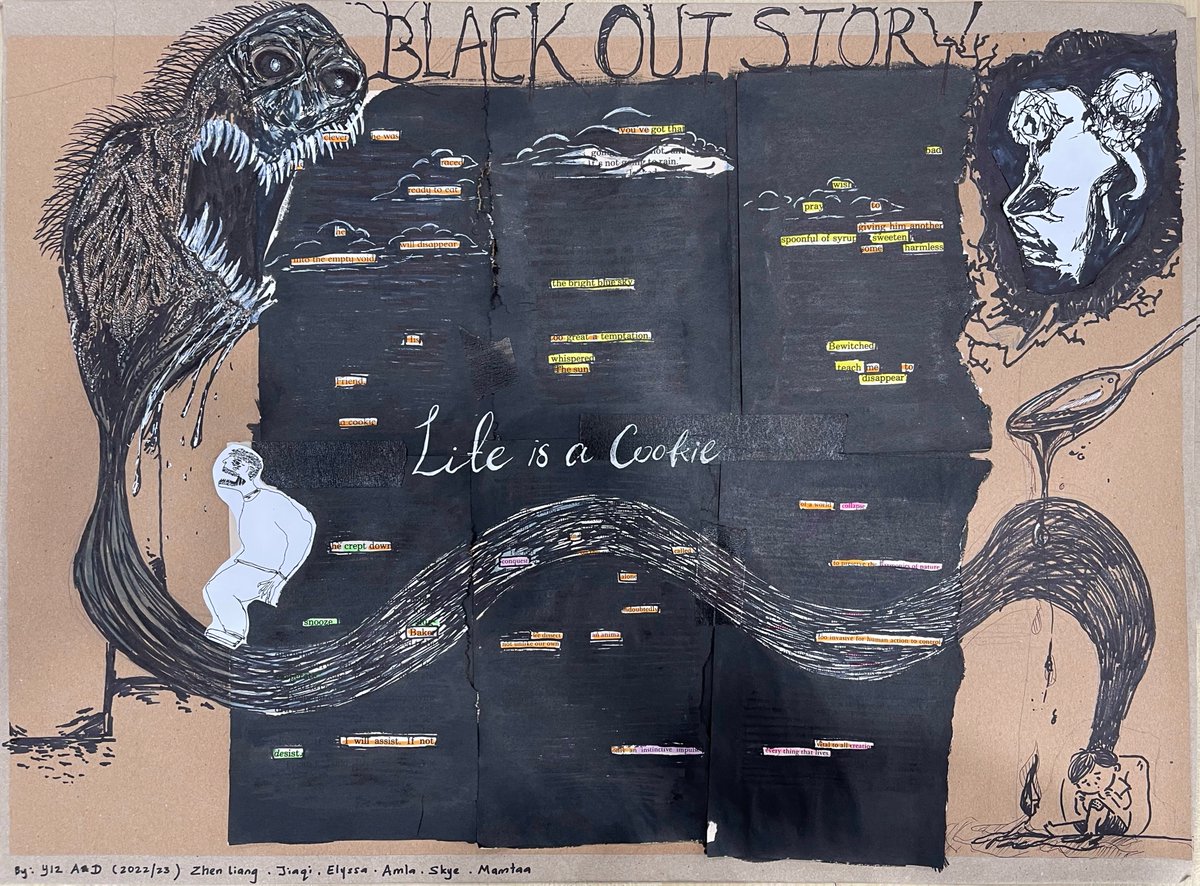 BLACK OUT STORY
clever he was
raced
ready to eat
he
will disappear
into the empty void
His
Friend
a cookie
you've got that
It's not going to rain.'
the bright blue sky
too great a temptation
whispered
The sun
bad
wish
pray to
giving him another
spoonful of syrup sweeten
some harmless
Bewitched
reach me to
disappear
Life is a Cookie
he crept down
snooze
Baker
I will assist. If not
desist.
conquest
called
alone
undoubtedly
we dissect an animal
not unlike our own
an instinctive impulse
of a world collapse
to preserve the harmonics of nature
too invasive for human action to control
vital to all creation
every thing that lives
By: Y12 A&D (2022/23) Zhen Liang . Jiaqi . Elyssa . Amla . Skye . Mamtaa